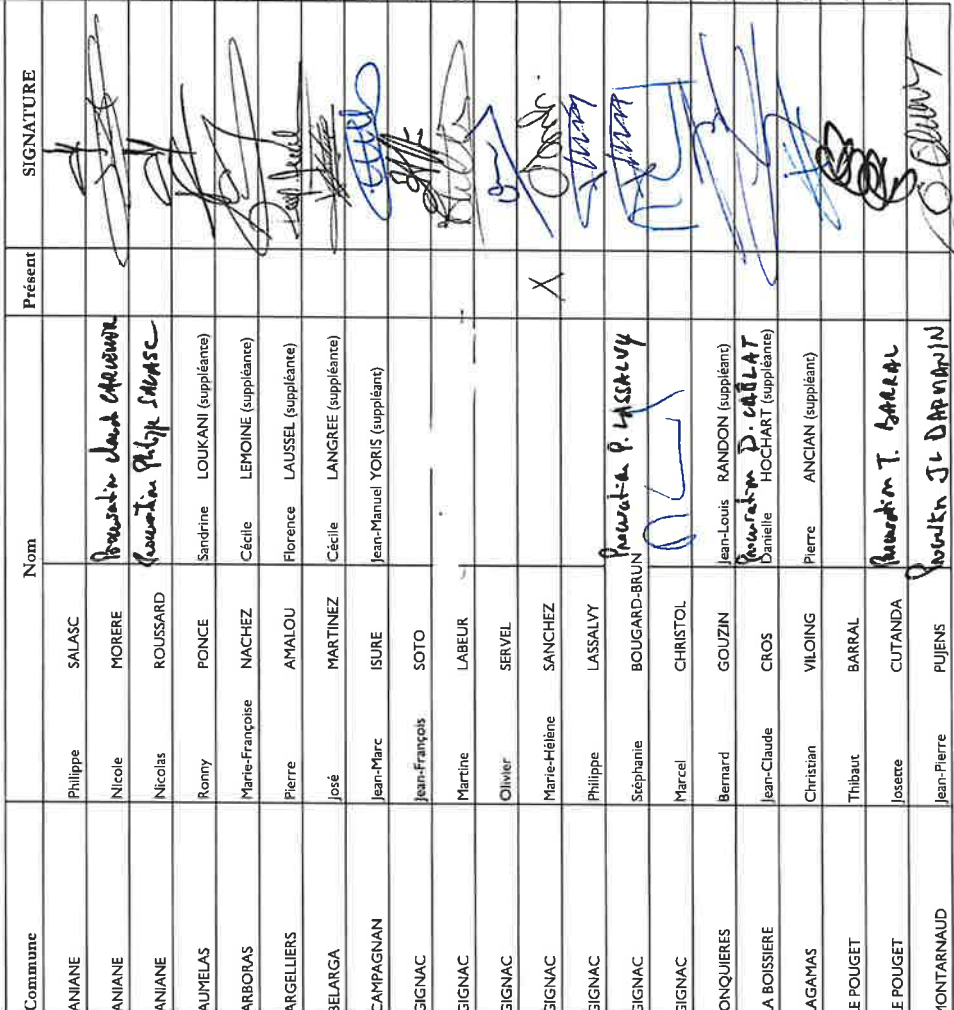 Commune Nom Présent SIGNATURE
ANIANE Philippe SALASC
ANIANE Nicole MORERE Procuration Claude CARCELLER
ANIANE Nicolas ROUSSARD Procuration Philippe SALASC
AUMELAS Ronny PONCE Sandrine LOUKANI (suppléante)
ARBORAS Marie-Françoise NACHEZ Cécile LEMOINE (suppléante)
ARGELLIERS Pierre AMALOU Florence LAUSSEL (suppléante)
BELARGA José MARTINEZ Cécile LANGREE (suppléante)
CAMPAGNAN Jean-Marc ISURE Jean-Manuel YORIS (suppléant)
GIGNAC Jean-François SOTO
GIGNAC Martine LABEUR
GIGNAC Olivier SERVEL
GIGNAC Marie-Hélène SANCHEZ X
GIGNAC Philippe LASSALVY
GIGNAC Stéphanie BOUGARD-BRUN Procuration P. LASSALVY
GIGNAC Marcel CHRISTOL
ONQUIERES Bernard GOUZIN Jean-Louis RANDON (suppléant)
LA BOISSIERE Jean-Claude CROS Procuration D. CABLAT
Danielle HOCHART (suppléante)
AGAMAS Christian VILOING Pierre ANCIAN (suppléant)
E POUGET Thibaut BARRAL
E POUGET Josette CUTANDA Procuration T. BARRAL
MONTARNAUD Jean-Pierre PUJENS Procuration JL DARMANIN